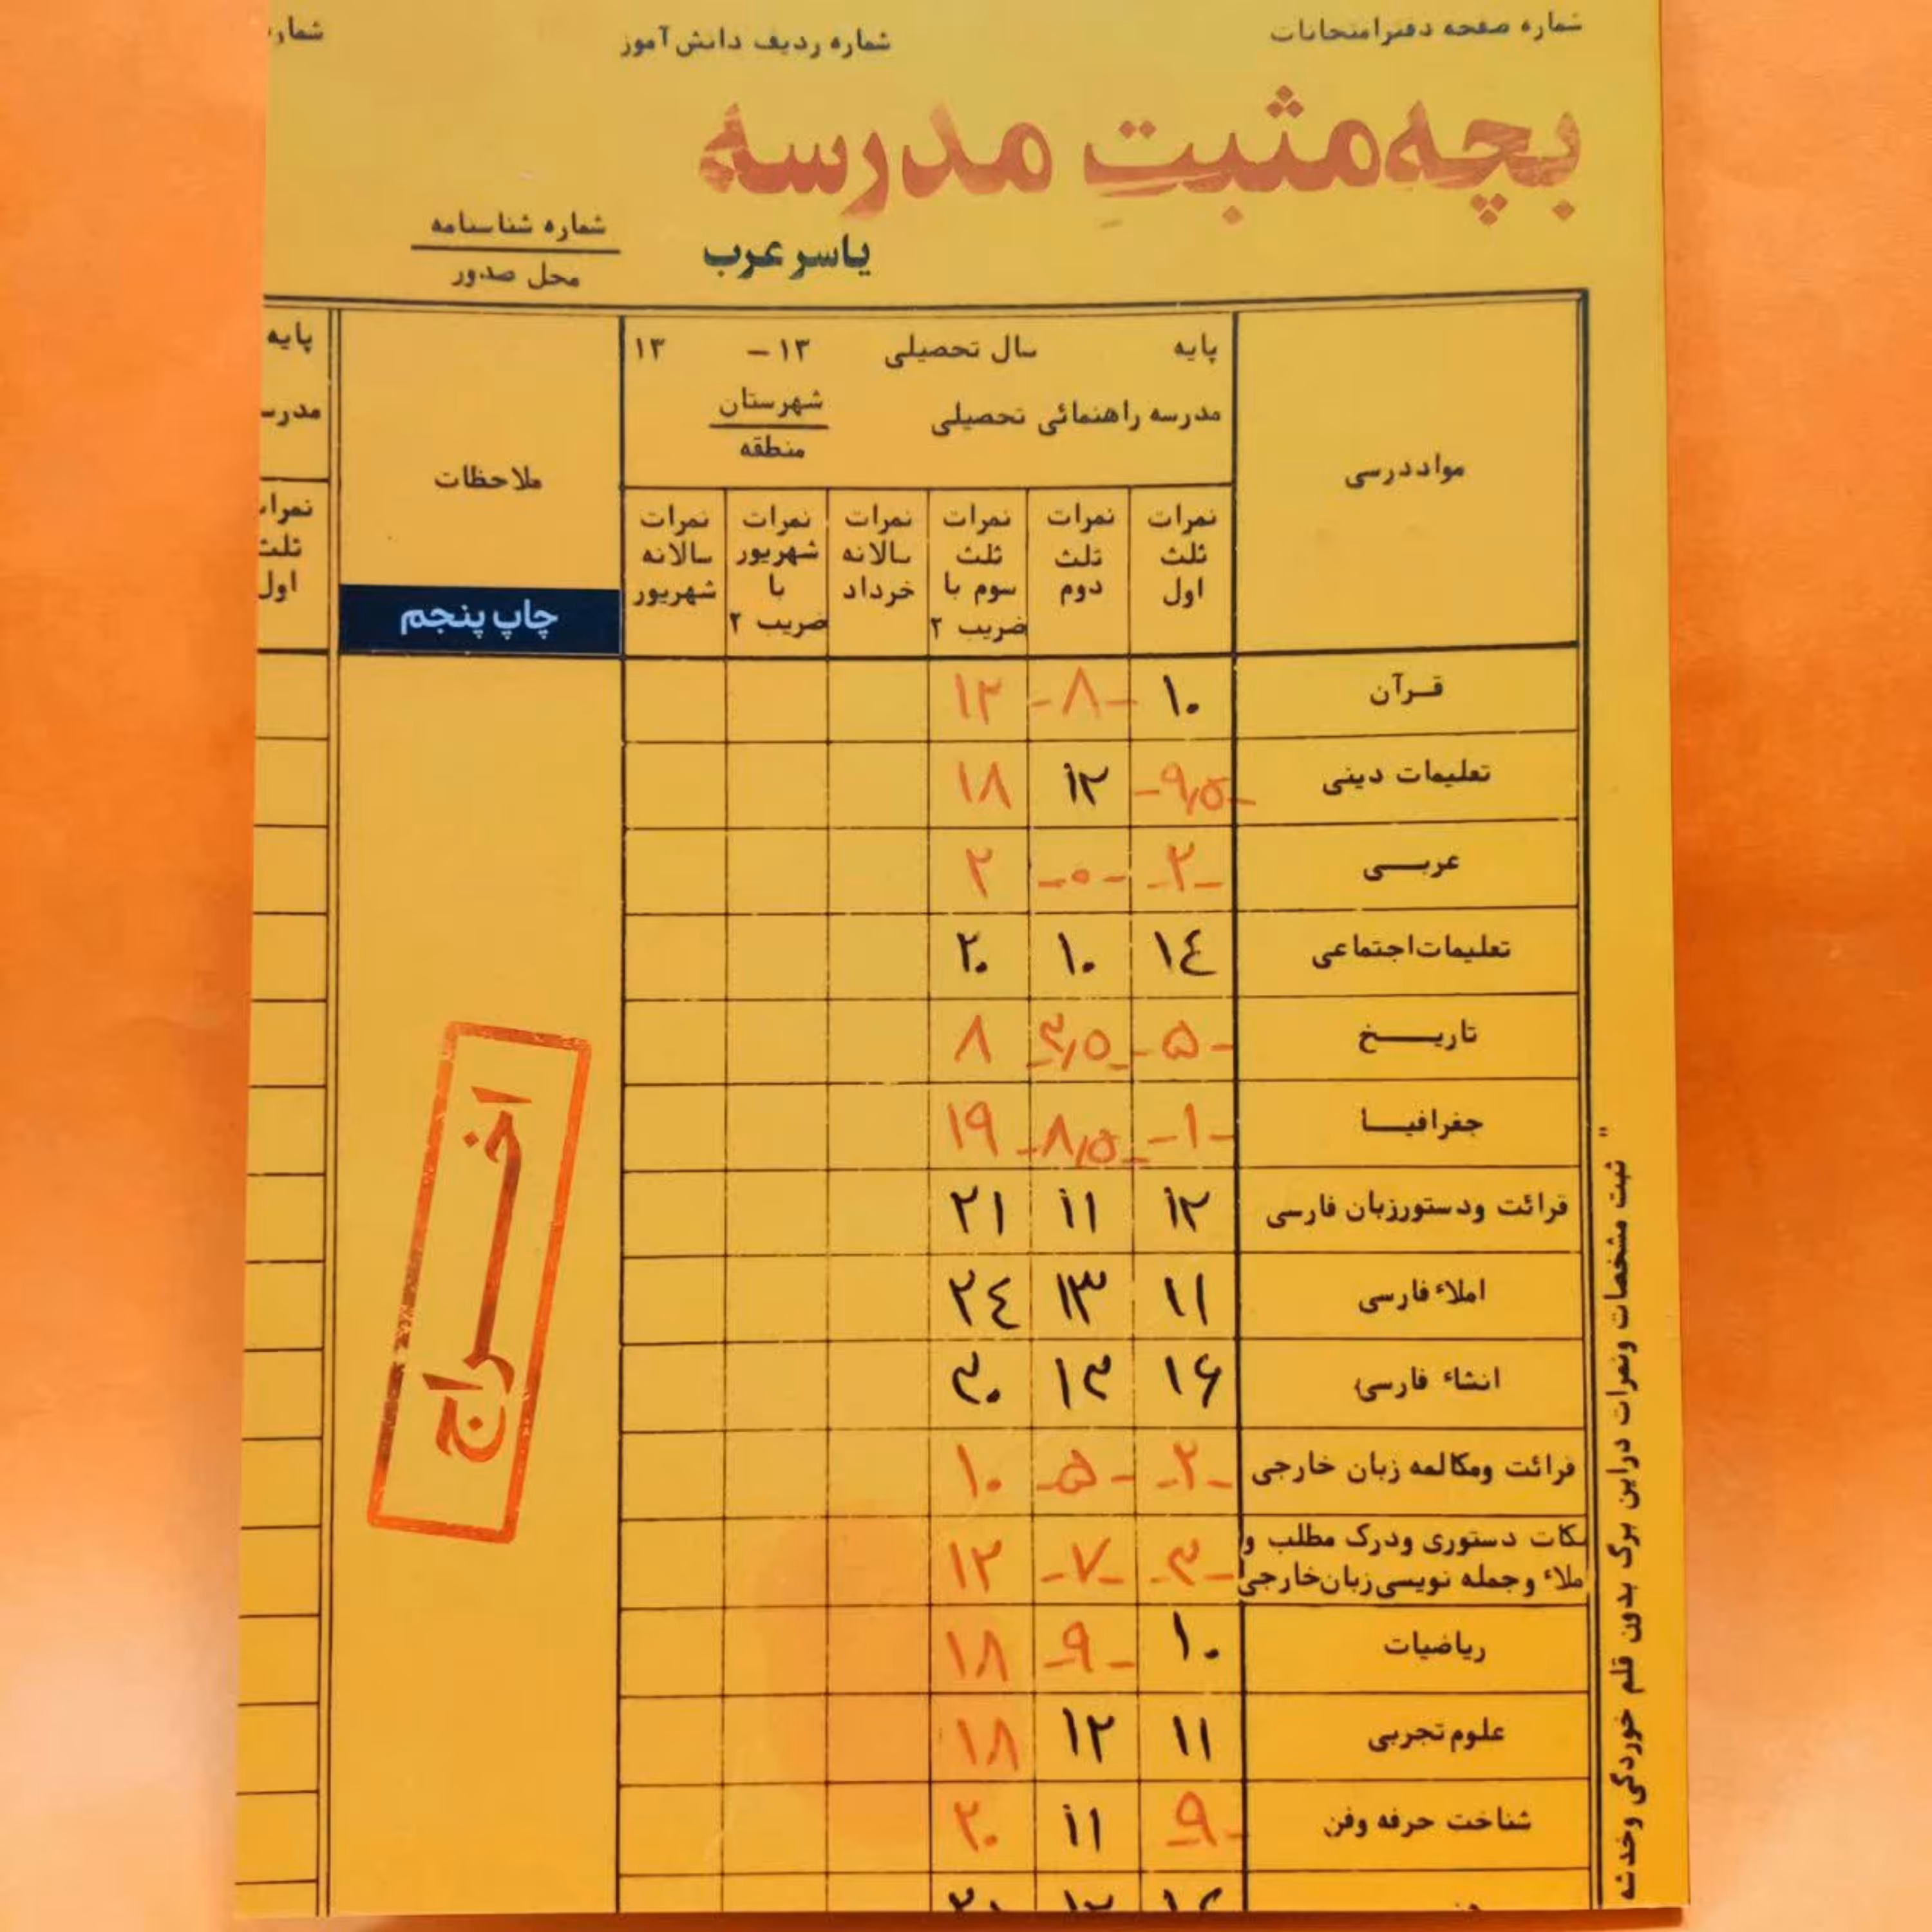 شماره صفحه دفتر امتحانات شماره ردیف دانش آموز شمار
بچه مثبتِ مدرسه
یاسر عرب
شماره شناسنامه
محل صدور
مواد درسی
پایه سال تحصیلی ۱۳ – ۱۳
مدرسه راهنمائی تحصیلی شهرستان
منطقه
نمرات ثلث اول
نمرات ثلث دوم
نمرات ثلث سوم با ضریب ۲
نمرات سالانه خرداد
نمرات شهریور با ضریب ۲
نمرات سالانه شهریور
ملاحظات
چاپ پنجم
پایه
مدرس
نمرات
ثلث
اول
قرآن ۱۰ -۸- ۱۲
تعلیمات دینی -۹٫۵- ۱۲ ۱۸
عربی -۲- -۰- ۲
تعلیمات اجتماعی ۱۴ ۱۰ ۲۰
تاریخ -۵- -۳٫۵- ۸
جغرافیا -۱- -۸٫۵- ۱۹
قرائت ودستورزبان فارسی ۱۲ ۱۱ ۲۱
املاء فارسی ۱۱ ۱۳ ۲۴
انشاء فارسی ۱۶ ۱۳ ۳۰
قرائت ومکالمه زبان خارجی -۲- -۵- ۱۰
نکات دستوری ودرک مطلب و
ملاء وجمله نویسی زبان خارجی -۳- -۷- ۱۲
ریاضیات ۱۰ -۹- ۱۸
علوم تجربی ۱۱ ۱۲ ۱۸
شناخت حرفه وفن -۹- ۱۱ ۲۰
اخراج
" ثبت مشخصات ونمرات دراین برگ بدون قلم خوردگی وخدشه